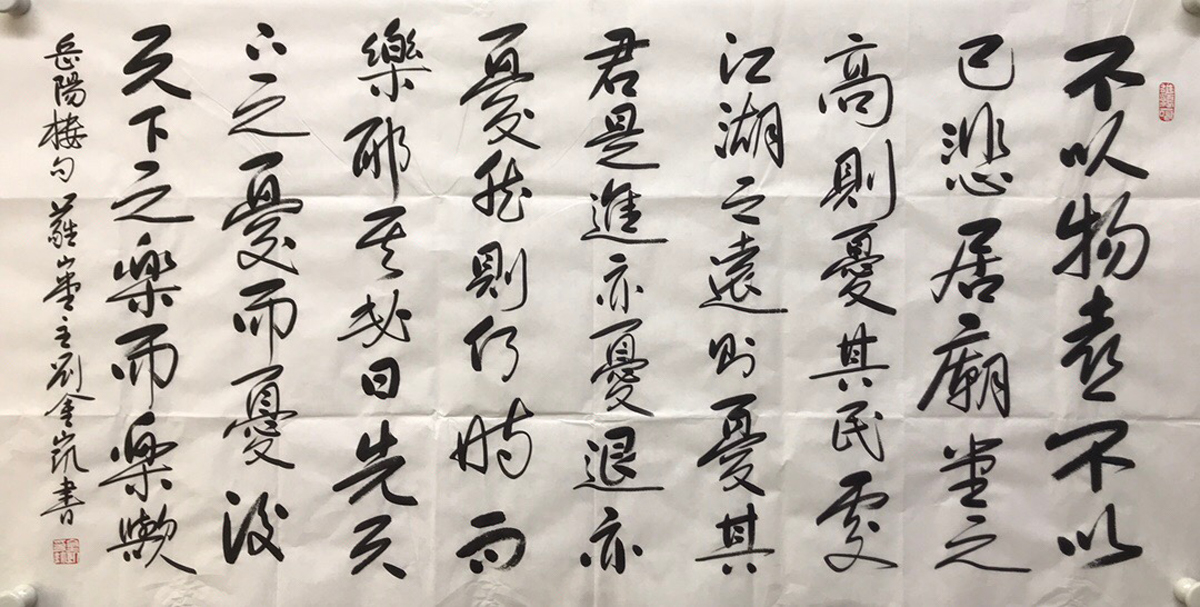 不以物喜不以
己悲居廟堂之
高則憂其民處
江湖之遠則憂其
君是進亦憂退亦
憂然則何時而
樂耶其必曰先天
下之憂而憂後
天下之楽而楽歟
岳陽樓句 山堂主劉金凱書